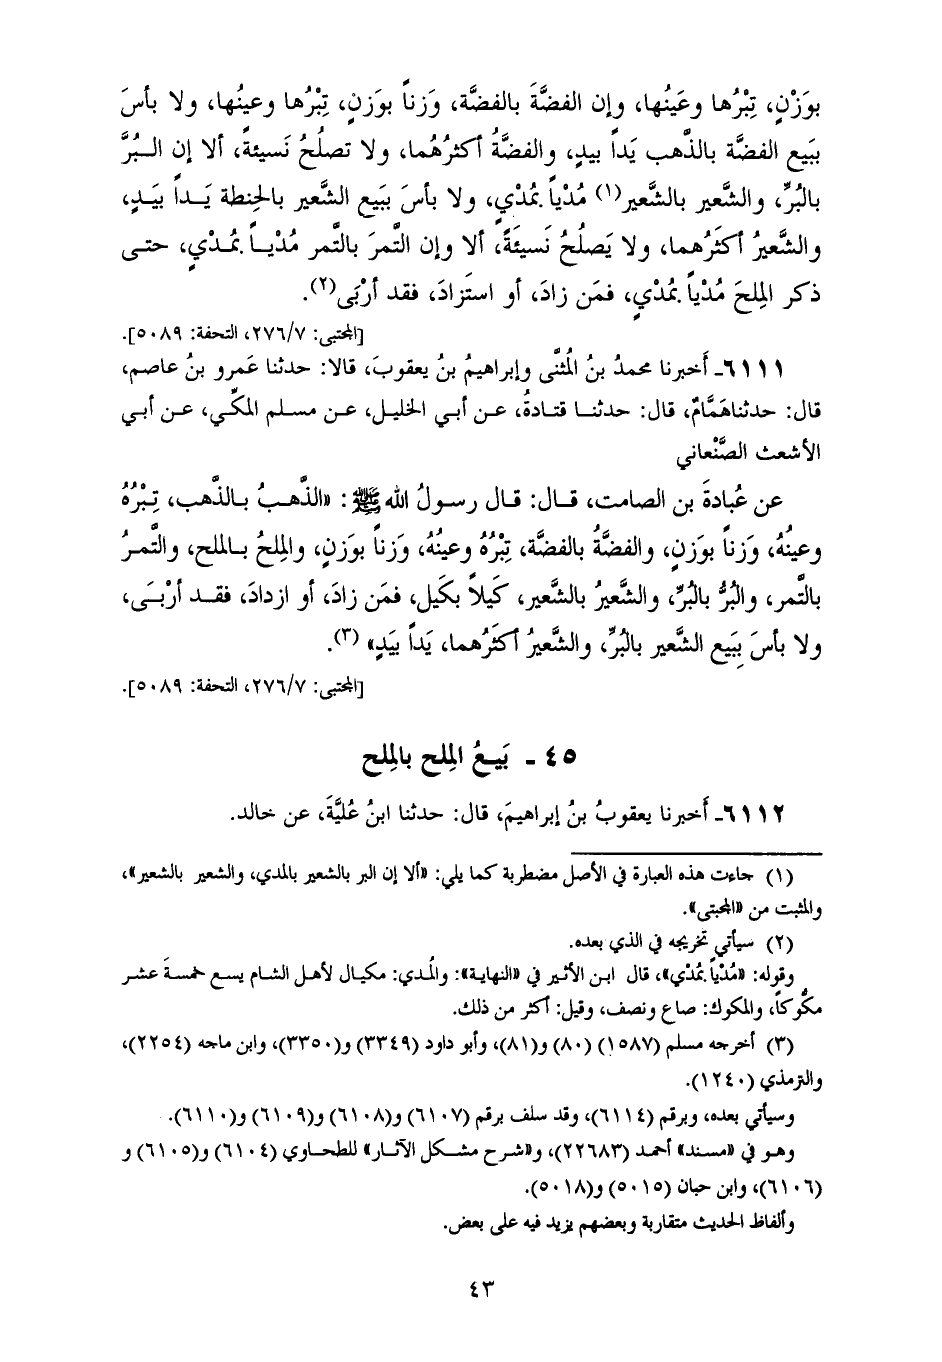 بوَزْنٍ، تِبْرُها وعَينُها، وإن الفضَّةَ بالفضَّة، وَزناً بوَزنٍ، تِبْرُها وعينُها، ولا بأسَ
ببَيع الفضَّة بالذَّهب يَداً بيدٍ، والفضَّةُ أكثرُهُما، ولا تصلُحُ نَسيئةً، ألا إن البُرَّ
بالبُرِّ، والشَّعير بالشَّعير(١) مُدْياً بمُدْيٍ، ولا بأسَ ببَيع الشَّعير بالحِنطة يَداً بيَدٍ،
والشَّعيرُ أكثَرُهما، ولا يَصلُحُ نَسيئَةً، ألا وإن التَّمرَ بالتَّمر مُدْياً بمُدْيٍ، حتى
ذكر المِلحَ مُدْياً بمُدْيٍ، فمَن زادَ، أو استَزادَ، فقد أرْبَى(٢).
[المجتبى: ٢٧٦/٧، التحفة: ٥٠٨٩].
٦١١١ـ أَخبرنا محمدُ بنُ المُثنَّى وإبراهيمُ بنُ يعقوبَ، قالا: حدثنا عَمرو بنُ عاصم،
قال: حدثناهَمَّامٌ، قال: حدثنا قتادةُ، عن أبي الخليل، عن مسلم المكِّي، عن أبي
الأشعث الصَّنْعاني
عن عُبادةَ بن الصامت، قال: قال رسولُ الله ﷺ: «الذَّهبُ بالذَّهب، تِبْرُهُ
وعينُهُ، وَزناً بوَزنٍ، والفضَّةُ بالفضَّة، تِبْرُهُ وعينُهُ، وَزناً بوَزنٍ، والمِلحُ بالملح، والتَّمرُ
بالتَّمر، والبُرُّ بالبُرِّ، والشَّعيرُ بالشَّعير، كَيلاً بكَيل، فمَن زادَ، أو ازدادَ، فقد أرْبَى،
ولا بأسَ ببَيع الشَّعير بالبُرِّ، والشَّعيرُ أكثَرُهما، يَداً بيَدٍ» (٣).
[المجتبى: ٢٧٦/٧، التحفة: ٥٠٨٩].
٤٥ - بَيعُ المِلح بالمِلح
٦١١٢ـ أَخبرنا يعقوبُ بنُ إبراهيمَ، قال: حدثنا ابنُ عُليَّةَ، عن خالد.
(١) جاءت هذه العبارة في الأصل مضطربة كما يلي: «ألا إن البر بالشعير بالمدي، والشعير بالشعير»،
والمثبت من «المجتبى».
(٢) سيأتي تخريجه في الذي بعده.
وقوله: «مُدْياً بمُدْيٍ»، قال ابن الأثير في «النهاية»: والمُدي: مكيال لأهل الشام يسع خمسةَ عشر
مكُّوكاً، والمكوك: صاع ونصف، وقيل: أكثر من ذلك.
(٣) أخرجه مسلم (١٥٨٧) (٨٠) و(٨١)، وأبو داود (٣٣٤٩) و(٣٣٥٠)، وابن ماجه (٢٢٥٤)،
والترمذي (١٢٤٠).
وسيأتي بعده، وبرقم (٦١١٤)، وقد سلف برقم (٦١٠٧) و(٦١٠٨) و(٦١٠٩) و(٦١١٠).
وهو في «مسند» أحمد (٢٢٦٨٣)، و«شرح مشكل الآثار» للطحاوي (٦١٠٤) و(٦١٠٥) و
(٦١٠٦)، وابن حبان (٥٠١٥) و(٥٠١٨).
وألفاظ الحديث متقاربة وبعضهم يزيد فيه على بعض.
٤٣